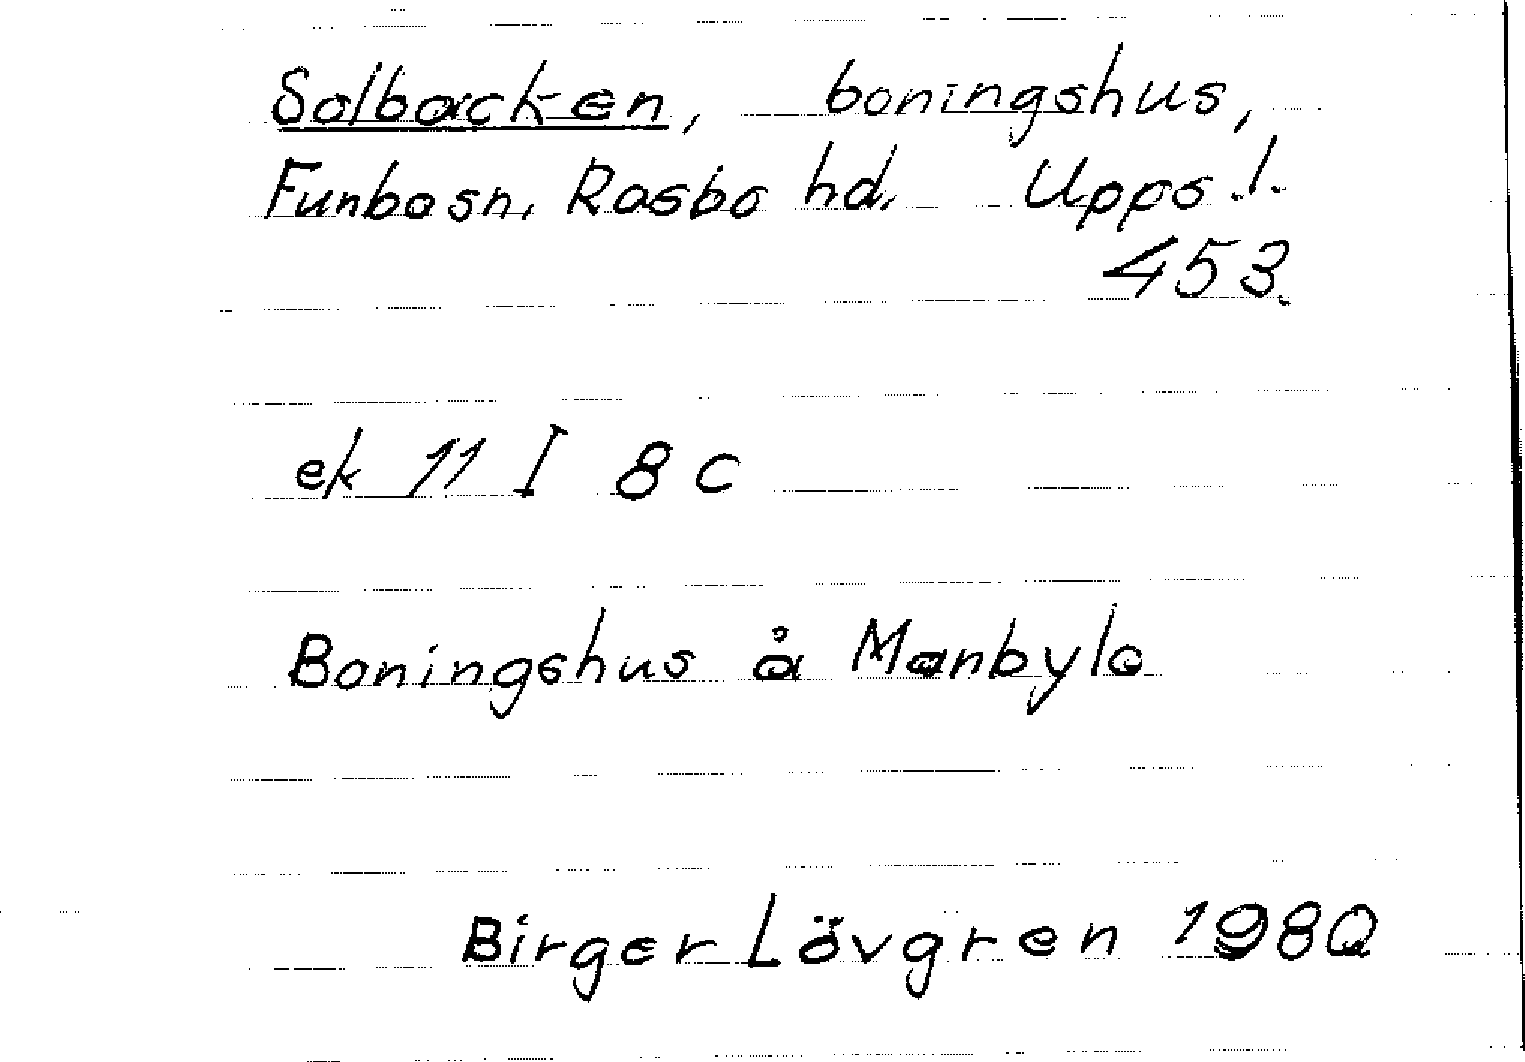 Solbacken, boningshus,
Funbo sn. Rasbo hd. Upps.l.
453.
ek 11 I 8 c
Boningshus å Manbyle
Birger Lövgren 1980